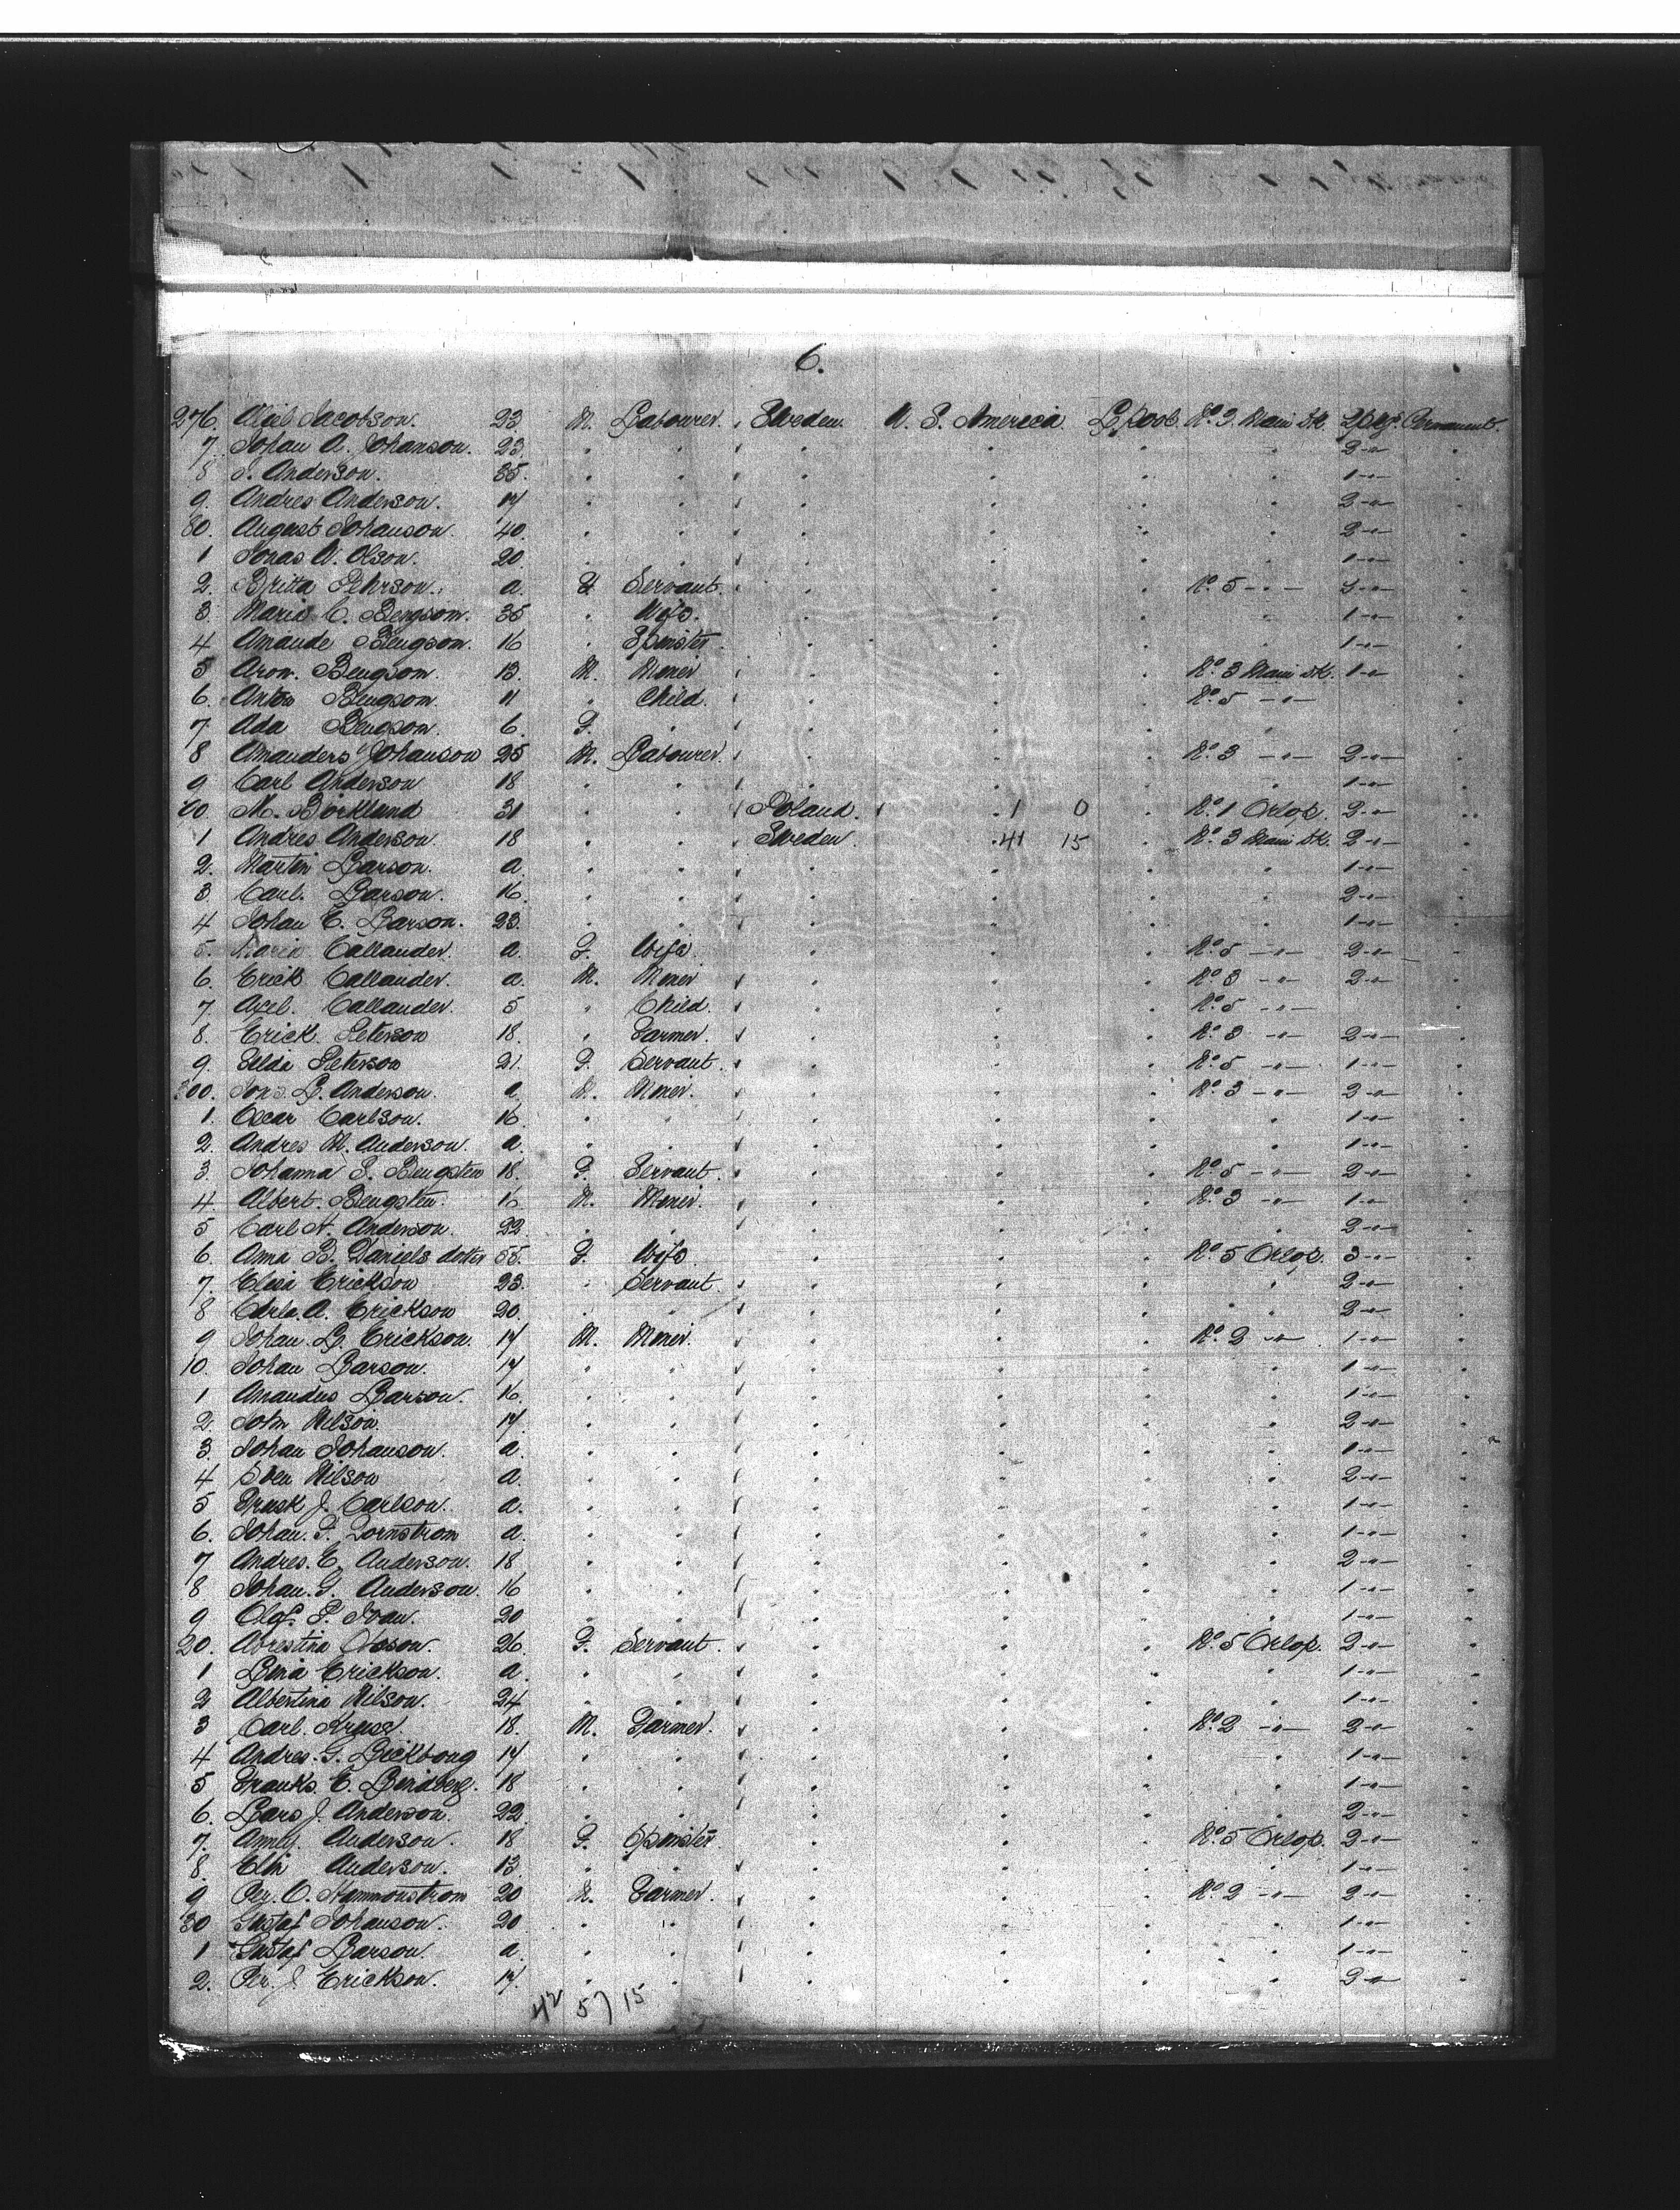 6.
276. Axel Jacobson. 23. M. Labourer. Sweden. U. S. America L.pool. No. 3. Main Dk 2 Pkgs. Permanent.
7. Johan A. Johanson. 23. " " " " " " 2 -"-
8 J. Anderson. 35. " " " " " " 1 -"-
9. Andres Anderson. 17 " " " " " " 2 -"-
80. August Johanson. 40. " " " " " " 2 -"-
1 Jonas A. Olson. 20. " " " " " " 1 -"-
2. Britta Pehrson. a. F Servant. " " " No. 5 -"-
3. Maria C. Bengson. 35 " Wife. " " " " 1 -"-
4 Amande Bengson. 16 " Spinster " " " " 1 -"-
5 Aron. Bengson. 13. M. Miner " " " No. 3 Main Dk. 1 -"-
6. Anton Bengson. 11 " Child. " " " No. 5 -"-
7. Ada Bengson. 6. F. " " " "
8 Amanders Johanson 25 M. Labourer. " " " No. 3 -"- 2 -"-
9 Carl Anderson 18 " " " " " " 1 -"-
90. M. Börklund 31 " " Poland. 1 0 " No. 1 Orlop. 2 -"-
1 Andres Anderson. 18 " " Sweden. 41 15 " No. 3 Main Dk. 2 -"-
2. Martin Larson. a. " " " " " " 1 -"-
3. Carl. Larson. 16. " " " " " " 2 -"-
4 Johan E. Larson. 23. " " " " " " 1 -"-
5. Maria Callander. a. F. Wife. " " " No. 5 -"- 2 -"-
6. Erick Callander. a. M. Miner " " " No. 3 -"- 2 -"-
7 Axel. Callander. 5 " Child. " " " No. 5 -"-
8. Erick. Peterson 18. " Farmer. " " " No. 3 -"- 2 -"-
9. Peterson 21. F. Servant. " " " No. 5 -"- 1 -"-
300. L. Anderson. a. M. Miner. " " " No. 3 -"- 2 -"-
1. Oscar Carlson. 16. " " " " " " 1 -"-
2. Andres M. Anderson. a. " " " " " " 1 -"-
3. Johanna S. Bengsten 18. F. Servant. " " " No. 5 -"- 2 -"-
4. Albert. Bengsten. 16 M. Miner. " " " No. 3 -"- 1 -"-
5 Carl A. Anderson. 22. " " " " " " 2 -"-
6. Anna B. Daniels dotter 55. F. Wife. " " " No. 5 Orlop. 3 -"-
7. Erickson 23. " Servant. " " " " 2 -"-
8 A. Erickson 20. " " " " " " 2 -"-
9 Johan. L. Erickson. 17 M. Miner. " " " No. 2 -"- 1 -"-
10. Johan Larson. 17 " " " " " " 1 -"-
1 Amandus Larson. 16. " " " " " " 1 -"-
2. John Nilson 17. " " " " " " 2 -"-
3. Johan Johanson. a. " " " " " " 1 -"-
4 Sven Nilson a. " " " " " " 2 -"-
5 J. Carlson. a. " " " " " " 1 -"-
6. Johan. F. a. " " " " " " 1 -"-
7 Andres. E. Anderson. 18 " " " " " " 2 -"-
8 Johan. G. Anderson. 16 " " " " " " 1 -"-
9 Olof. P. 20 " " " " " " 1 -"-
20. 26. F. Servant. " " " No. 5 Orlop. 2 -"-
1 Lena Erickson. a. " " " " " " 1 -"-
2 Albertina Nilson. 24 " " " " " " 1 -"-
3 Carl. 18. M. Farmer. " " " No. 2 -"- 2 -"-
4 Andres. G. 17 " " " " " " 1 -"-
5 E. 18 " " " " " " 1 -"-
6. Lars J. Anderson. 22. " " " " " " 2 -"-
7. Anderson. 18 F. Spinster " " " No. 5 Orlop. 2 -"-
8. Anderson. 13. " " " " " " 1 -"-
9 Per. O. Hammonstrom 20 M. Farmer. " " " No. 2 -"- 2 -"-
30 Gustaf Johanson. 20. " " " " " " 1 -"-
1 Gustaf Larson. a. " " " " " " 1 -"-
2. Per. J. Erickson. 17. " " " " " " 2 -"-
42 57 15